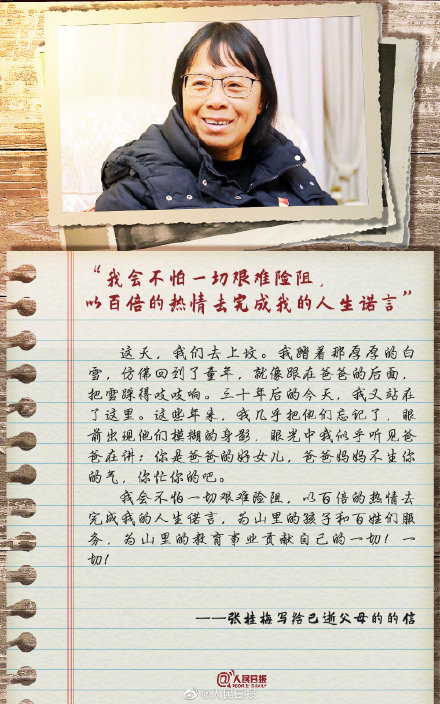 “我会不怕一切艰难险阻，
以百倍的热情去完成我的人生诺言”
这天，我们去上坟。我踏着那厚厚的白
雪，仿佛回到了童年，就像跟在爸爸的后面，
把雪踩得吱吱响。三十年后的今天，我又站在
了这里。这些年来，我几乎把他们忘记了，眼
前出现他们模糊的身影，眼光中我似乎听见爸
爸在讲：你是爸爸的好女儿，爸爸妈妈不生你
的气，你忙你的吧。
我会不怕一切艰难险阻，以百倍的热情去
完成我的人生诺言，为山里的孩子和百姓们服
务，为山里的教育事业贡献自己的一切！一
切！
——张桂梅写给已逝父母的的信
@人民日报
PEOPLE'S DAILY
@人民日报